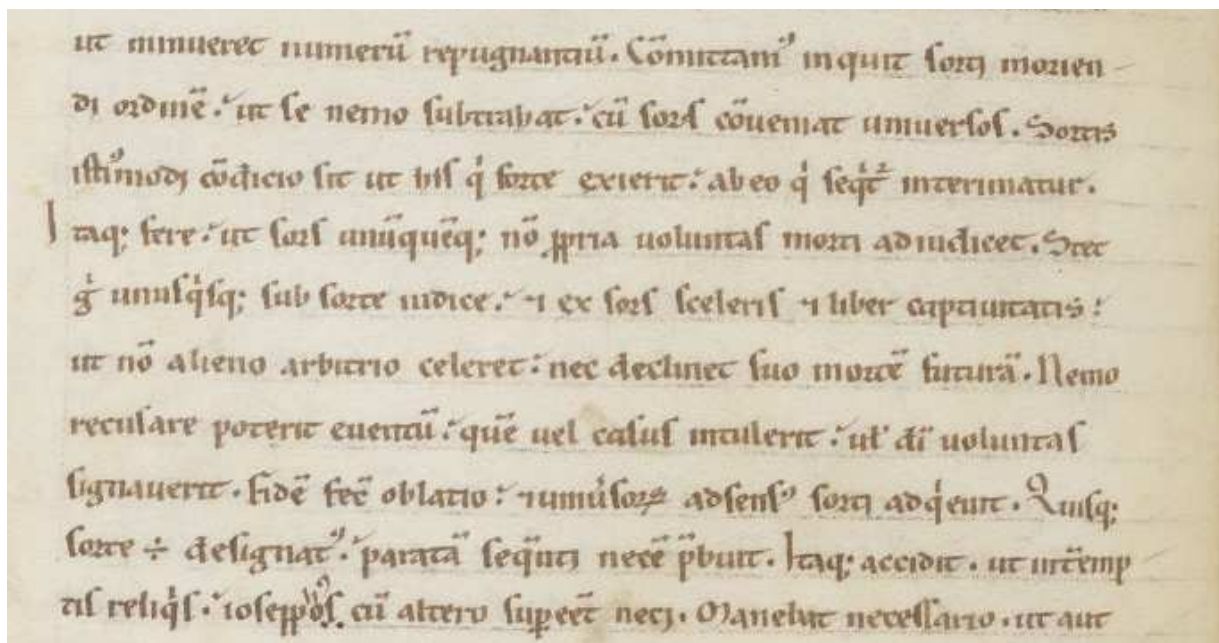 ut minueret numerū repugnantiū. Cōmittam᷒ inquit sorti morien
di ordinē. ut se nemo subtrahat. cū sors cōveniat universos. Sortis
isti᷒modi cōdicio sit ut his qͥ sorte exierit. ab eo qͥ seqͥt᷑ interimatur.
Itaq; fiere. ut sors unūquēq; nō ꝓpria uoluntas morti adiudicet. Stet
gͥ unusqͥsq; sub sorte iudice. ⁊ ex sors sceleris ⁊ liber captiuitatis.
ut nō alieno arbitrio celeret. nec declinet suo mortē futurā. Nemo
recusare poterit euentū. quē uel casus intulerit. ul̓ dī uoluntas
signauerit. Fidē fec̄ oblatio. ⁊ uniūsoꝝ adsens᷒ sorti adqͥeuit. Quisq;
sorte ÷ designat᷒. paratā seqn̄ti necē p̄buit. Itaq; accidit. ut int̄emp
tis reliqͥs. ioseppos cū altero suꝑeēt neci. Manebat necessario. ut aut